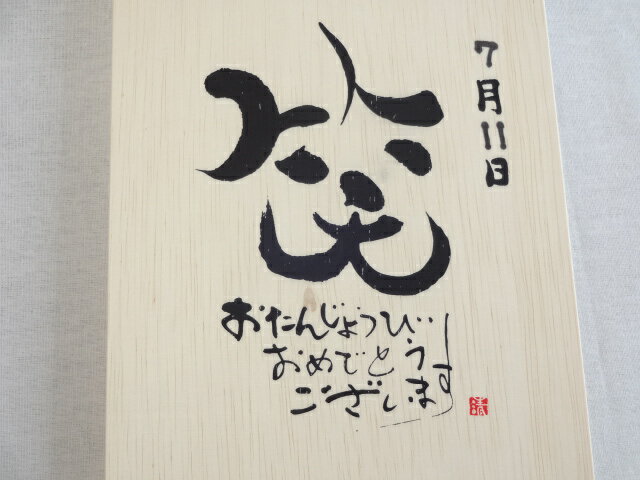 7月11日
笑
おたんじょうび
おめでとう
ございます